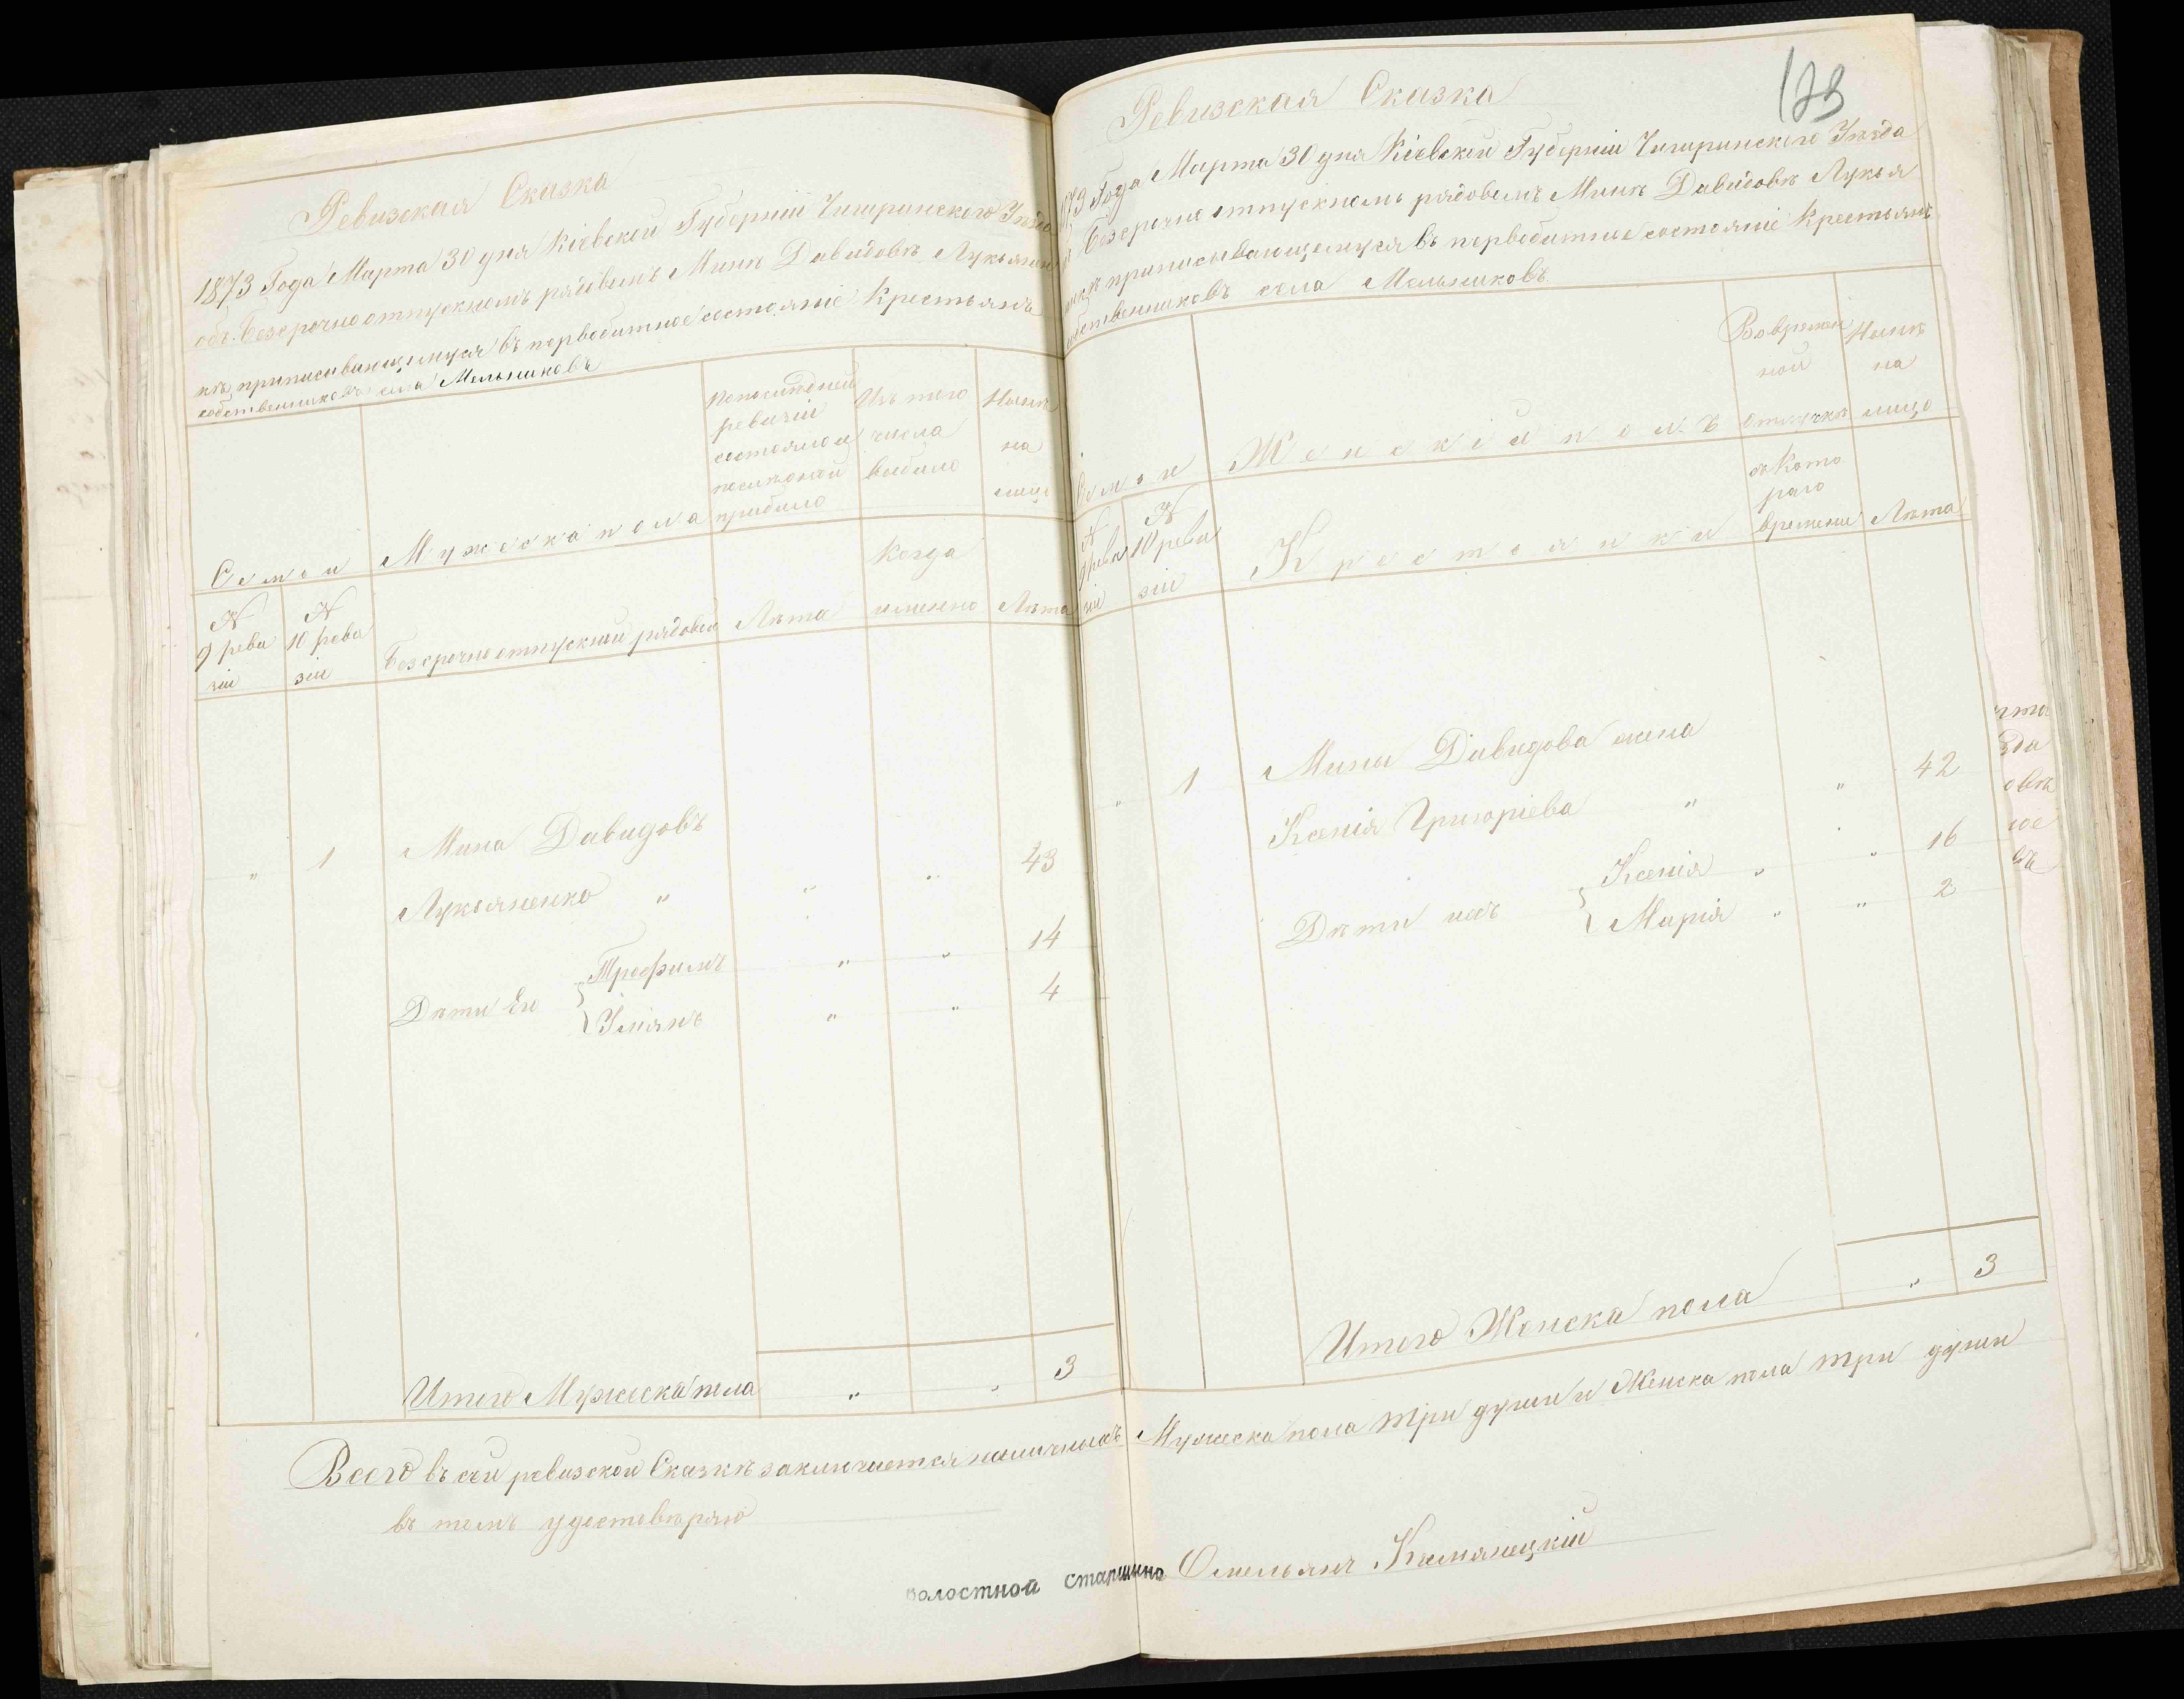 Ревизская Сказка
1873 Года Марта 30 дня Кіевской Губерніи Чигиринского Уѣзда
объ безсрочноотпускномъ рядовымъ Минѣ Давидовѣ Лукьянен
кѣ, приписывающемуся въ первобитное состояніе Крестьянъ
собственниковъ села Мельниковъ
Семьи
Мужеска пола
По последней ревизіи состояло и после оной прибыло
Изъ того числа выбыло
Нынѣ на лицо
N 9 реви зіи
N 10 реви зіи
Безсрочно отпускные рядовые
Лѣта
Когда именно
Лѣта
" 1 Мина Давидовъ
Лукьяненко " " " 43
Дѣти Его { Трофимъ " " 14
Улианъ " " 4
Итого Мужеска пола " " 3
Ревизская Сказка
123
1873 Года Марта 30 дня Кіевской Губерніи Чигиринского Уѣзда
о безсрочно отпускномъ рядовымъ Минѣ Давидовѣ Лукья
ненкѣ приписывающемуся въ первобитное состояніе Крестьянъ
собственниковъ села Мельниковъ
Семьи
Женскій полъ
Во времен ной отлучкѣ
Нынѣ на лицо
N 9 реви зіи
N 10 реви зіи
Крестьянки
съ Кото раго времени
Лѣта
" 1 Мины Давидова жена
Ксенія Григоріева " " 42
Дѣти ихъ { Ксенія " " 16
Марія " " 2
Итого Женска пола " 3
Всего въ сей ревизской Сказкѣ заключается наличныхъ Мужеска пола три души и Женска пола три души
въ томъ удостовѣряю
волостной старшина Омельянъ